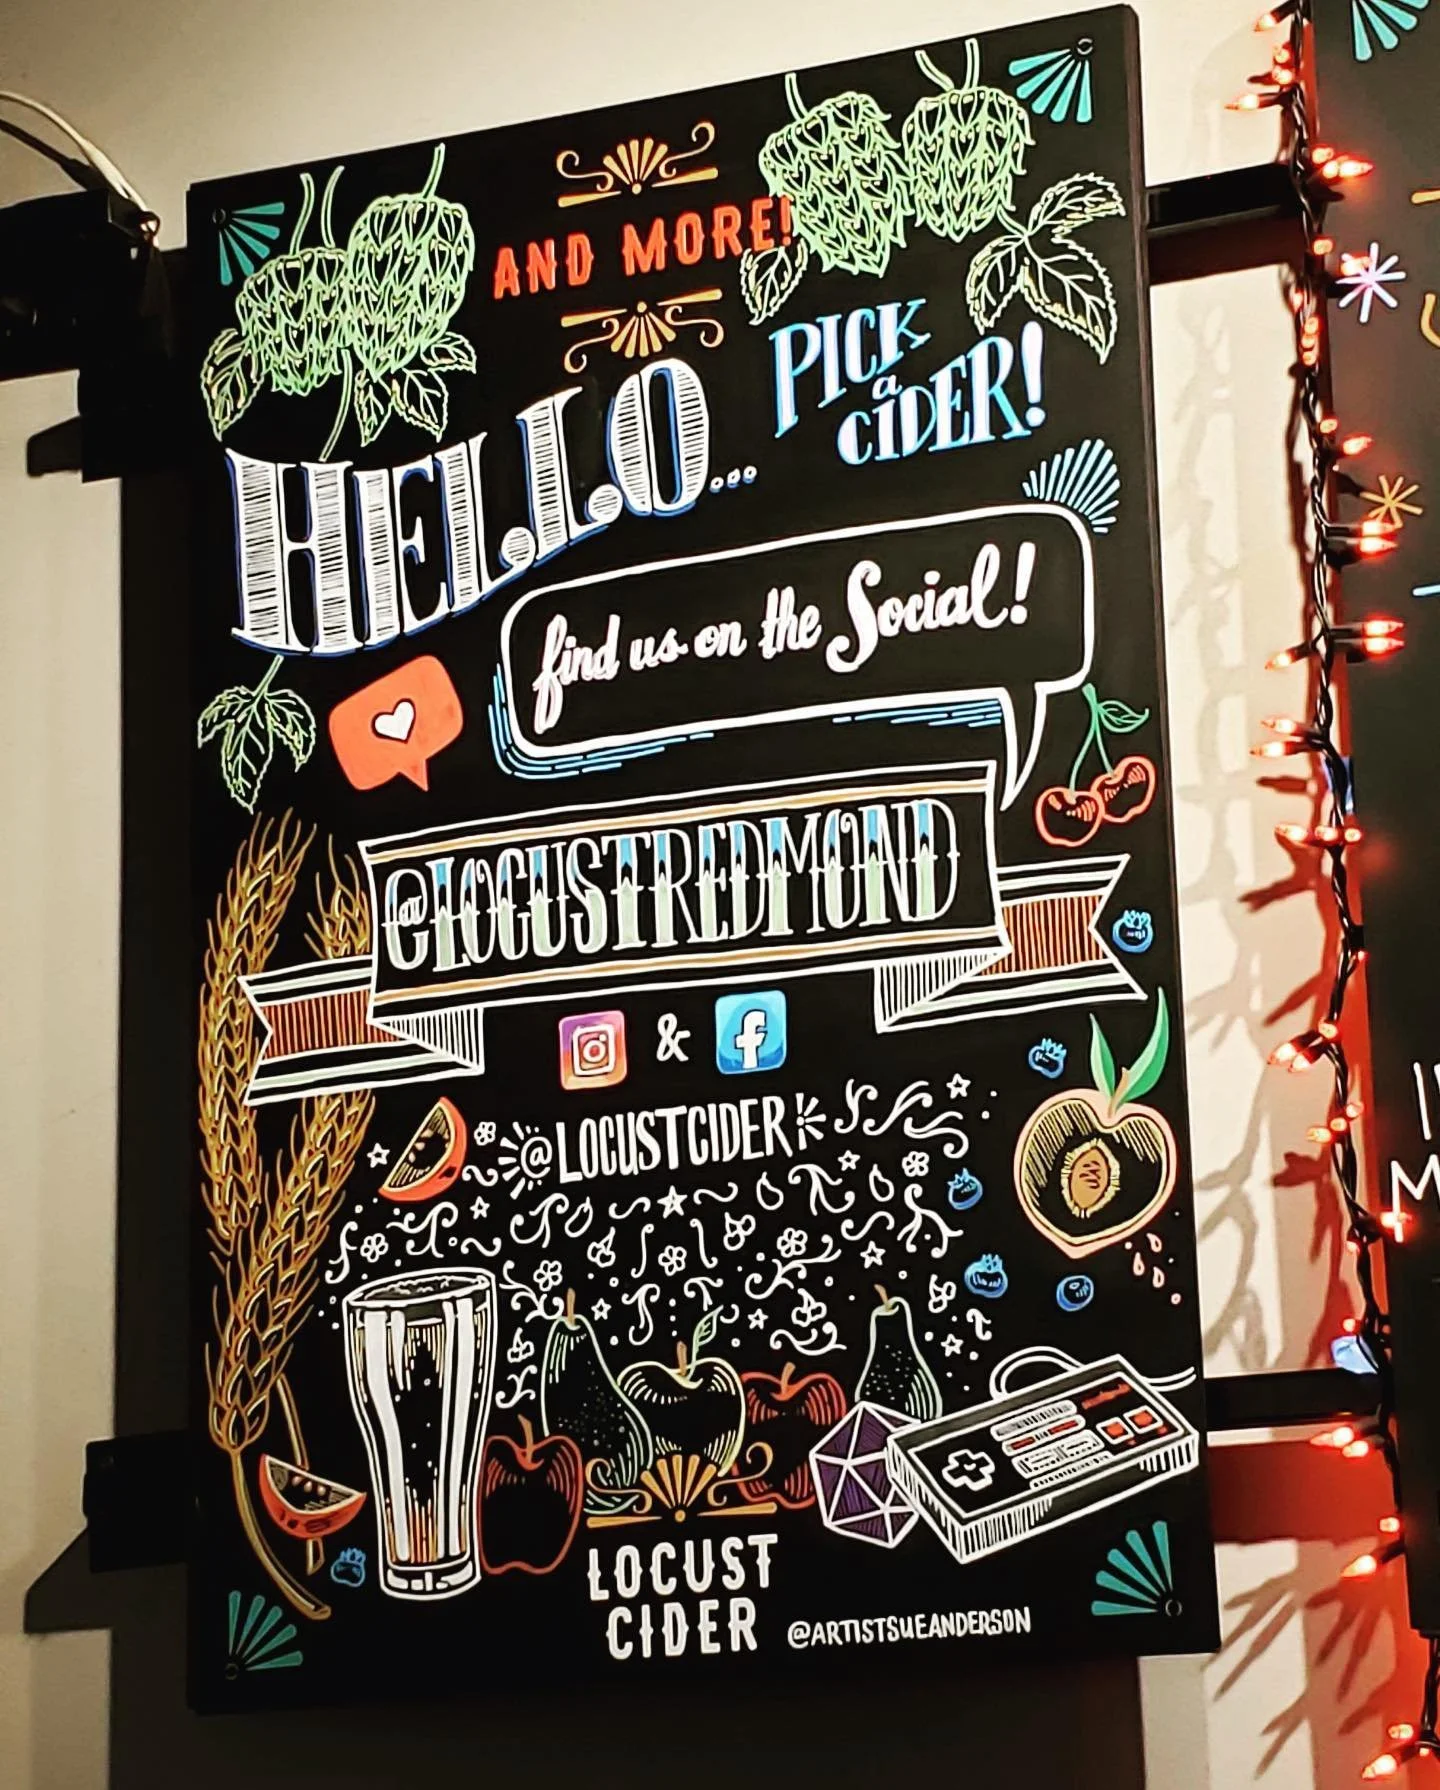 AND MORE!
HELLO...
PICK
a
CIDER!
find us on the Social!
@LOCUSTREDMOND
&
@LOCUSTCIDER
LOCUST
CIDER
@ARTISTSUEANDERSON